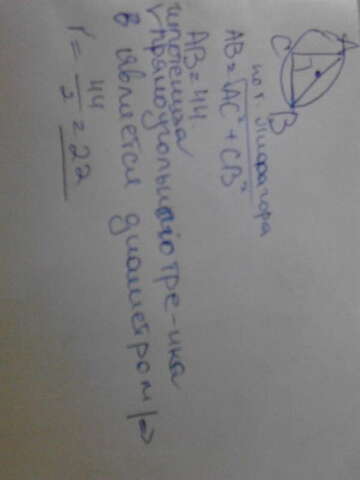 A
C
B
по т. Пифагора
AB = √AC² + CB²
AB = 44
гипотенуза
прямоугольного тре-ика
в является диаметром =>
r = 44/2 = 22